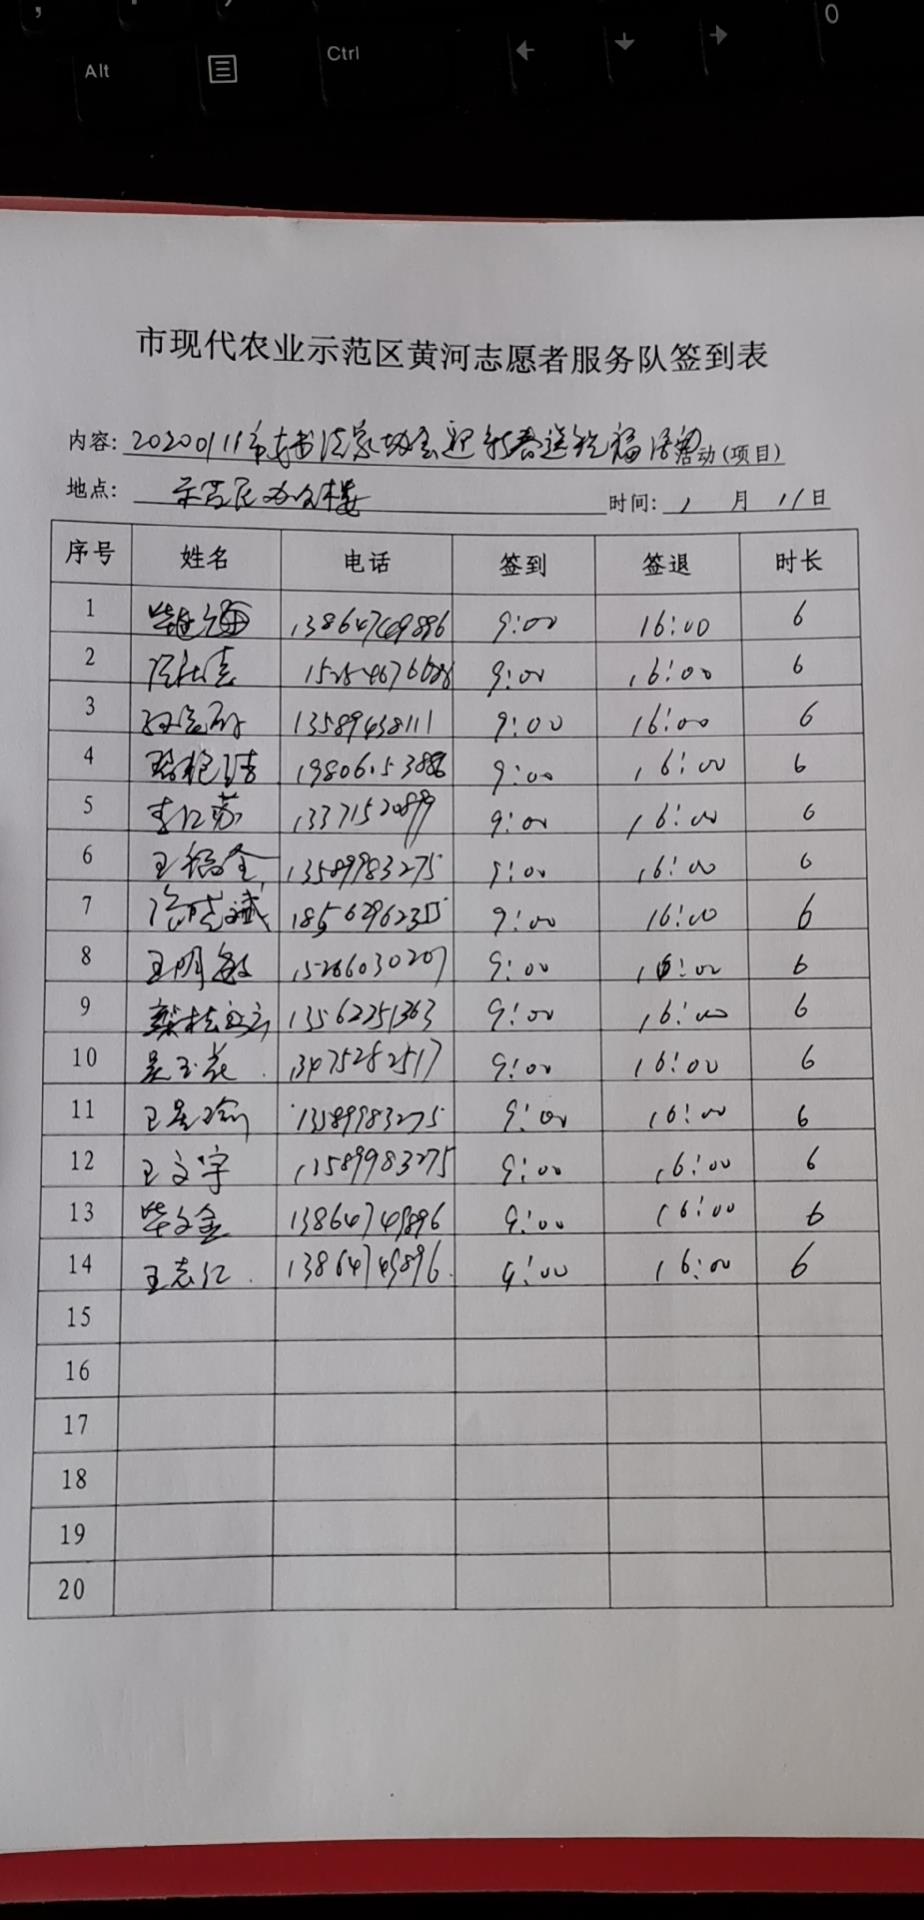 0
Alt
Ctrl
市现代农业示范区黄河志愿者服务队签到表
内容: 20200111市书法家协会迎新春送祝福活动 活动(项目)
地点: 示范区办公楼 时间: 1 月 11 日
序号 姓名 电话 签到 签退 时长
1 13864749896 9:00 16:00 6
2 9:00 16:00 6
3 13589438111 9:00 16:00 6
4 9:00 16:00 6
5 李江苏 9:00 16:00 6
6 王福全 13589983275 9:00 16:00 6
7 9:00 16:00 6
8 王明敏 15266030207 9:00 16:00 6
9 13562251363 9:00 16:00 6
10 吴玉花 13475282517 9:00 16:00 6
11 13589983275 9:00 16:00 6
12 王文宇 13589983275 9:00 16:00 6
13 毕文金 13864749896 9:00 16:00 6
14 王志江 13864749896 9:00 16:00 6
15
16
17
18
19
20